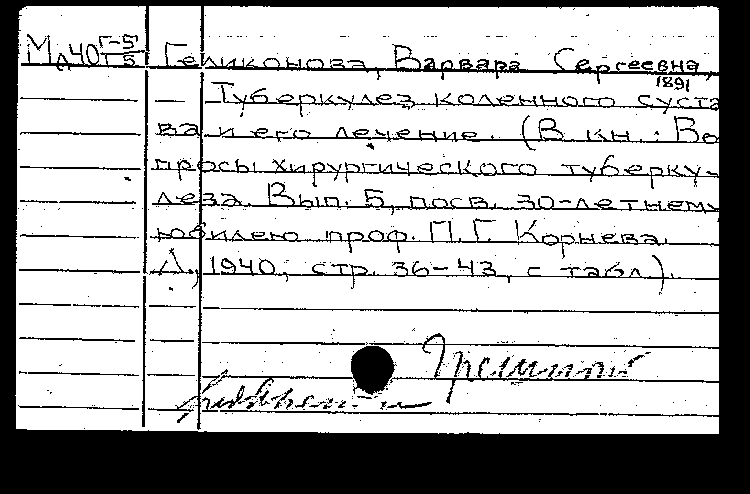 Мд40 Г-5 Геликонова, Варвара Сергеевна,
Г5 1891
— Туберкулез коленного суста
ва и его лечение. (В кн.: Во
просы хирургического туберку-
леза. Вып. 5, посв. 30-летнему
юбилею проф. П.Г. Корнева.
Л., 1940, стр. 36-43, с табл).